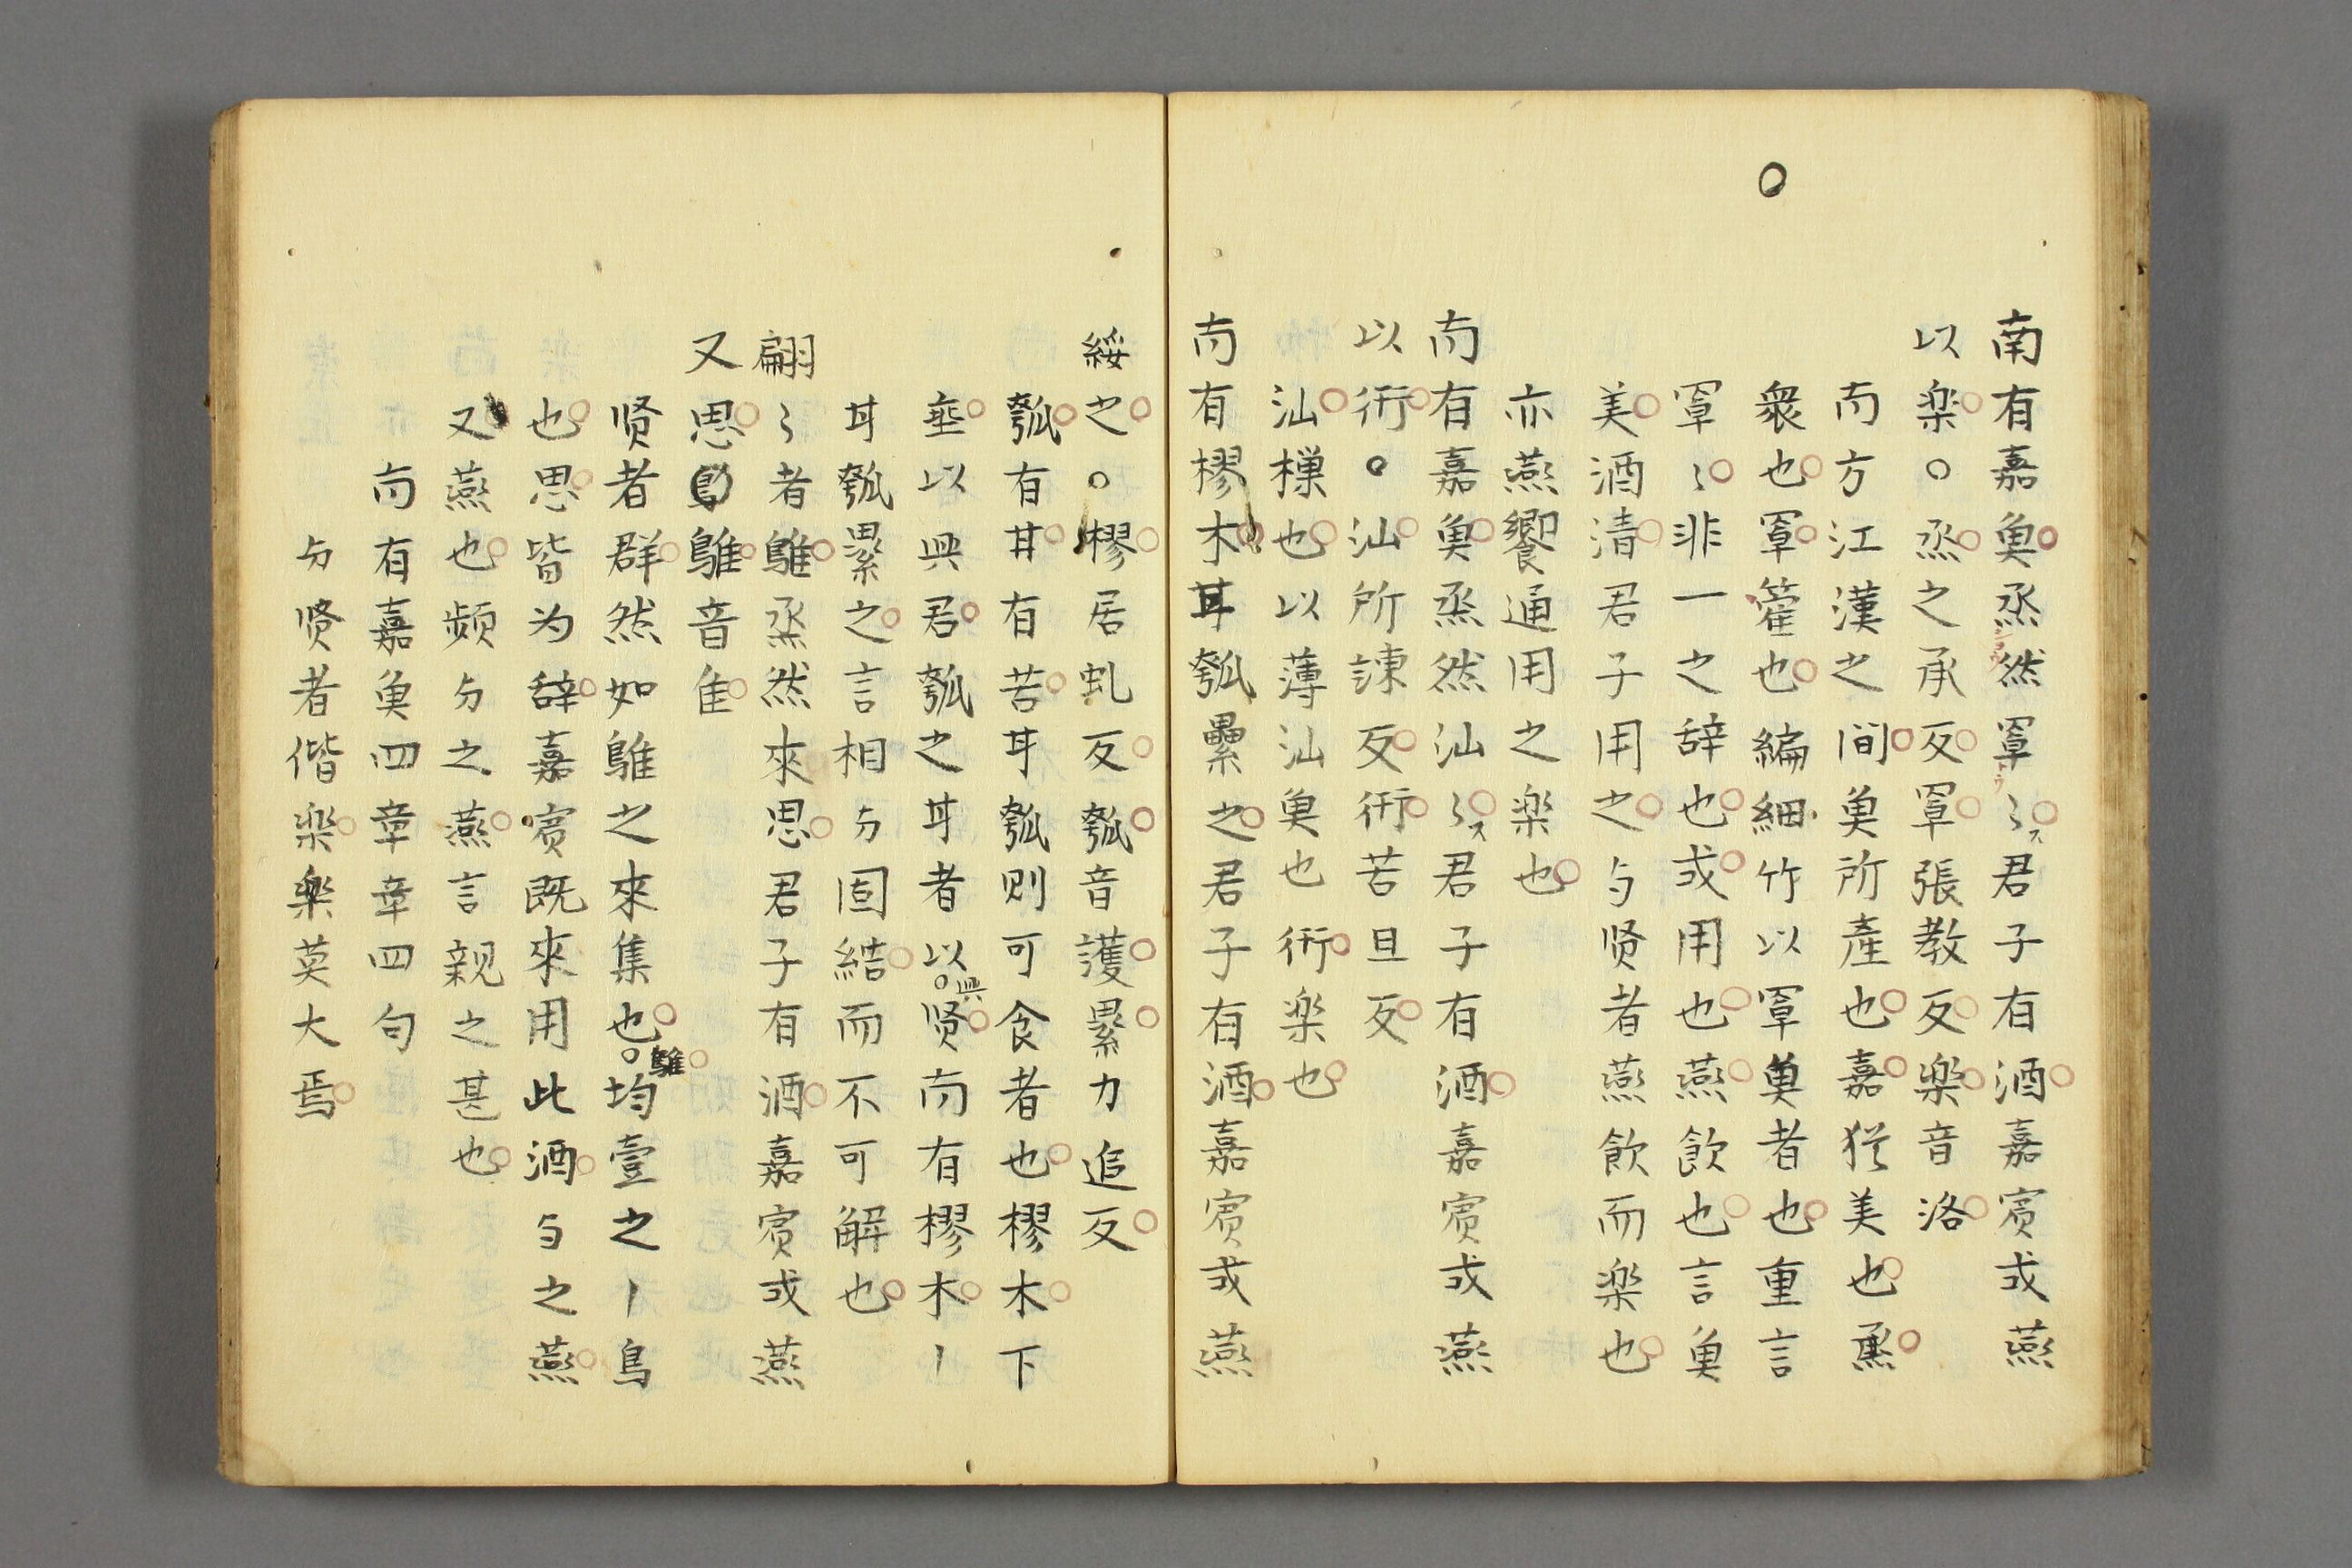 南有嘉魚烝然罩〻君子有酒嘉賓或燕
以楽○烝之承反罩張教反楽音洛
南方江漢之間魚所産也嘉猶美也烝
衆也罩籗也編細竹以罩魚者也重言
罩〻非一之辞也或用也燕飲也言魚
美酒清君子用之与賢者燕飲而楽也
亦燕饗通用之楽也
南有嘉魚烝然汕〻君子有酒嘉賓或燕
以衎○汕所諫反衎苦旦反
汕樔也以薄汕魚也衎楽也
南有樛木甘瓠纍之君子有酒嘉賓或燕
綏之○樛居虬反瓠音護纍力追反
瓠有甘有苦甘瓠則可食者也樛木下
垂以興君瓠之甘者以興賢南有樛木丨
甘瓠纍之言相与固結而不可解也
翩〻者鵻烝然來思君子有酒嘉賓或燕
又思鵻音隹
賢者群然如鵻之來集也鵻均壹之丨鳥
也思皆为辞嘉賓既來用此酒与之燕
又燕也頻与之燕言親之甚也
南有嘉魚四章章四句
与賢者偕楽楽莫大焉
シヨウ
トウ
ス
ス